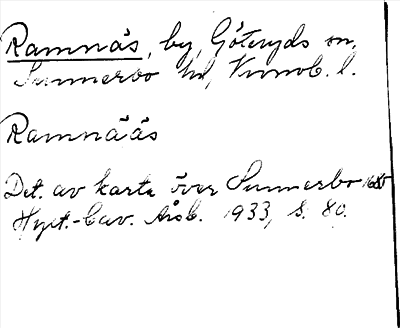 Ramnäs, by, Göteryds sn,
Sunnerbo hd, Kronob. l.
Ramnääs
Det. av karta över Sunnerbo 1685
Hylt.-Cav. Årsb. 1933, s. 80.